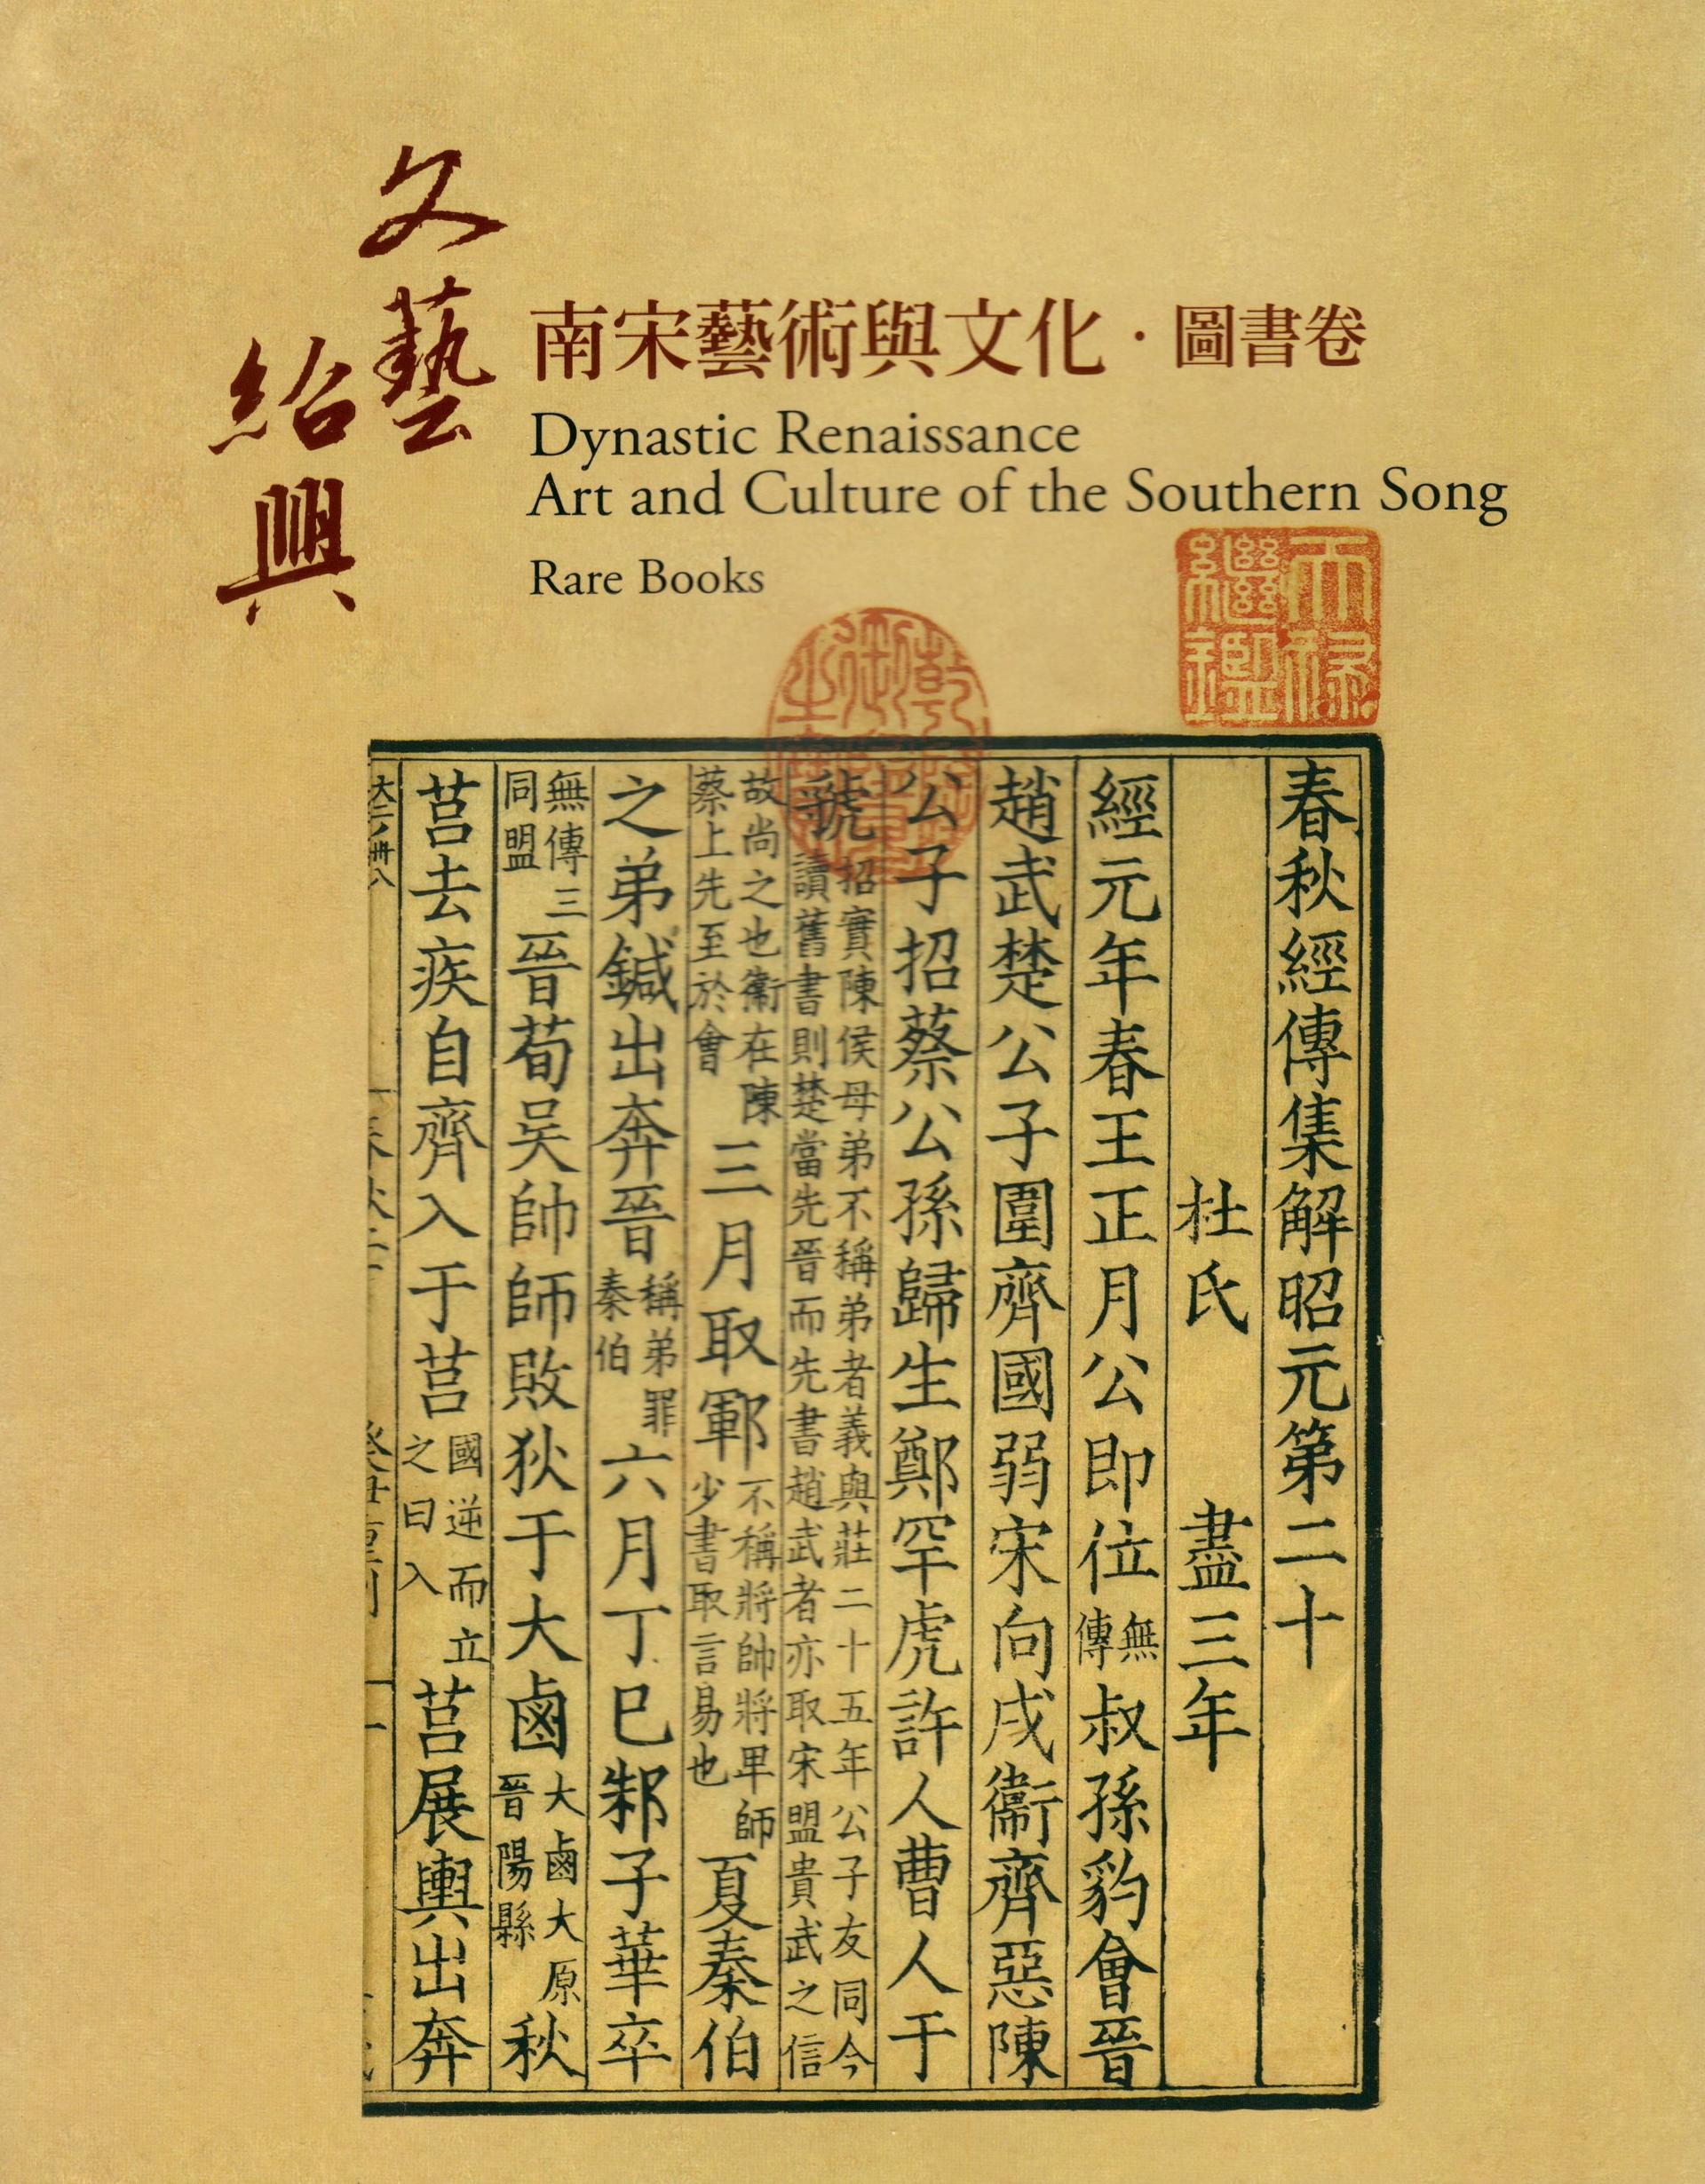 文藝
紹興
南宋藝術與文化・圖書卷
Dynastic Renaissance
Art and Culture of the Southern Song
Rare Books
天祿繼鑑
乾隆御覽之寶
春秋經傳集解昭元第二十
杜氏 盡三年
經元年春王正月公即位無傳叔孫豹會晉
趙武楚公子圍齊國弱宋向戌衞齊惡陳
公子招蔡公孫歸生鄭罕虎許人曹人于
虢招實陳侯母弟不稱弟者義與莊二十五年公子友同今讀舊書則楚當先晉而先書趙武者亦取宋盟貴武之信
故尚之也衞在陳蔡上先至於會三月取鄆不稱將帥將卑師少書取言易也夏秦伯
之弟鍼出奔晉稱弟罪秦伯六月丁巳邾子華卒
無傳三同盟晉荀吳帥師敗狄于大鹵大鹵大原晉陽縣秋
莒去疾自齊入于莒國逆而立之曰入莒展輿出奔